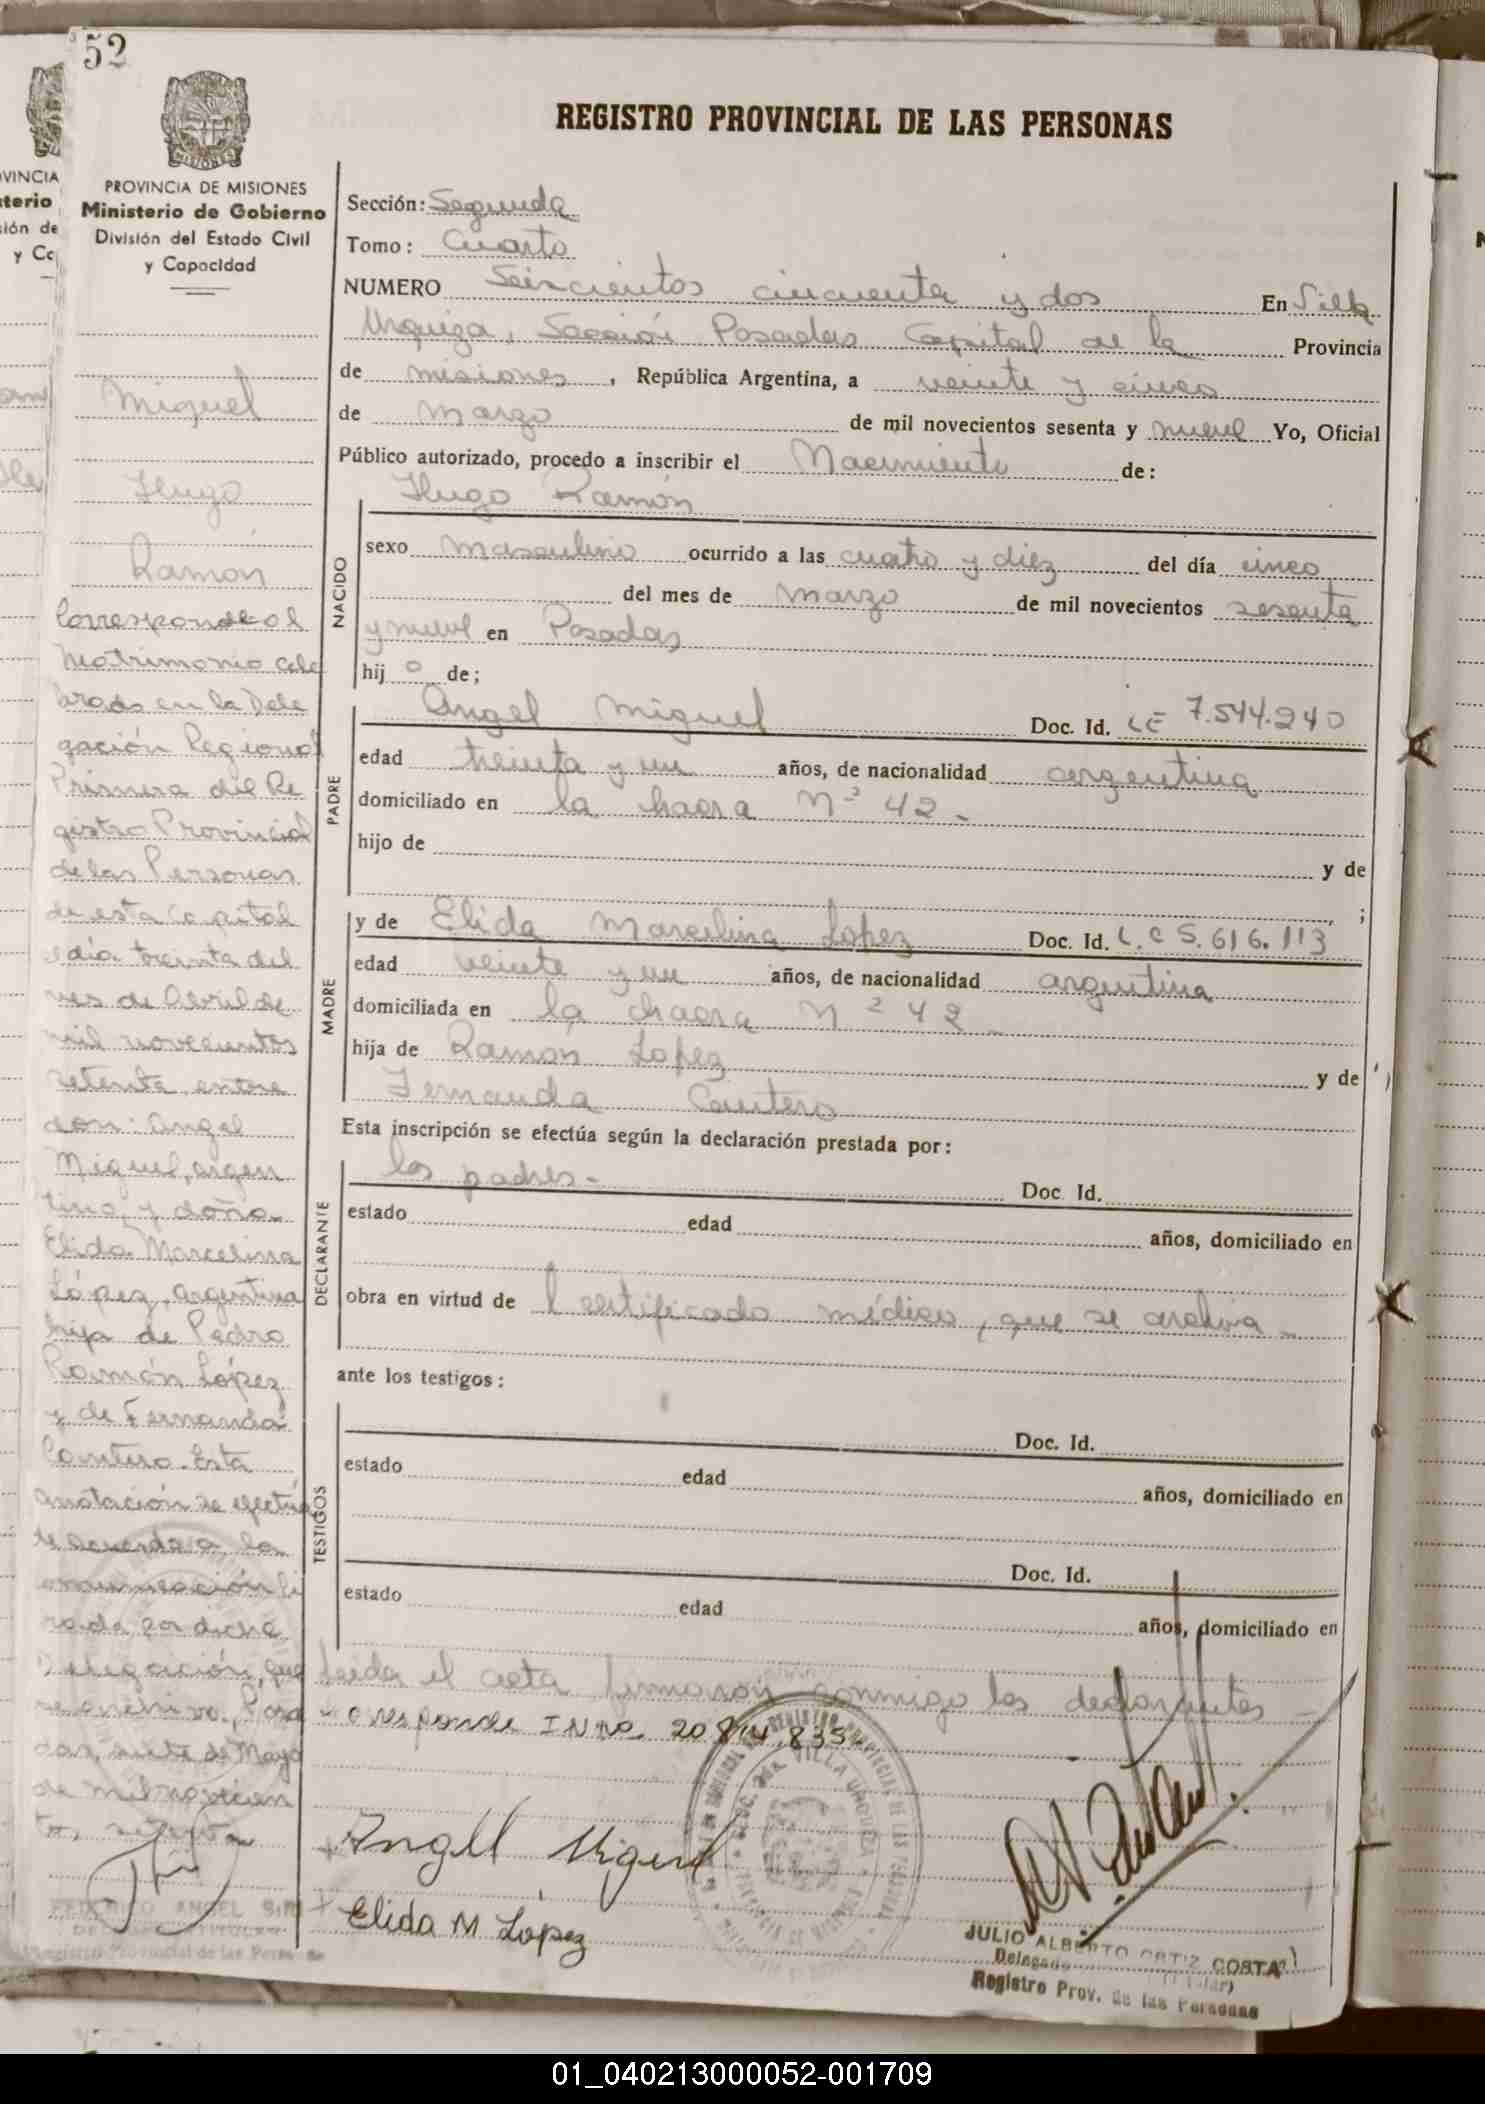 52
PROVINCIA DE MISIONES
Ministerio de Gobierno
División del Estado Civil
y Capacidad
REGISTRO PROVINCIAL DE LAS PERSONAS
Sección: Segunda
Tomo: Cuarto
NUMERO Seiscientos cincuenta y dos En Villa
Urquiza, Sección Posadas Capital de la Provincia
de misiones, República Argentina, a veinte y cinco
de marzo de mil novecientos sesenta y nueve Yo, Oficial
Público autorizado, procedo a inscribir el Nacimiento de:
Hugo Ramón
NACIDO
sexo masculino ocurrido a las cuatro y diez del día cinco
del mes de marzo de mil novecientos sesenta
y nueve en Posadas
hij o de;
PADRE
Angel Miguel Doc. Id. LE 7.544.240
edad treinta y un años, de nacionalidad argentina
domiciliado en la chacra Nº 42 -
hijo de y de
;
MADRE
y de Elida Marcelina Lopez Doc. Id. L.C 5.616.113
edad veinte y un años, de nacionalidad argentina
domiciliada en la chacra Nº 42 -
hija de Ramón Lopez y de
Fernanda Cantero
Esta inscripción se efectúa según la declaración prestada por:
DECLARANTE
los padres - Doc. Id.
estado edad años, domiciliado en
obra en virtud de l certificado médico, que se archiva -
ante los testigos:
TESTIGOS
Doc. Id.
estado edad años, domiciliado en
Doc. Id.
estado edad años, domiciliado en
Leida el acta firmaron conmigo los declarantes -
Corresponde I Nro. 20.814.835
Angel Miguel
Elida M López
JULIO ALBERTO ORTIZ COSTA
Delegado (Titular)
Registro Prov. de las Personas
Miguel
Hugo
Ramón
Corresponde al
Matrimonio cele
brado en la Dele
gación Regional
Primera del Re
gistro Provincial
de las Personas
de esta Capital
el día treinta del
mes de Abril de
mil novecientos
setenta, entre
don: Angel
Miguel, argen
tino y doña
Elida Marcelina
López, argentina
hija de Pedro
Ramón López
y de Fernanda
Cantero. Esta
anotación se efectúa
de acuerdo a la
comunicación li
brada por dicha
Delegación, que
se archiva. Posa
das, siete de Mayo
de mil novecien
tos setenta
FEDERICO ANGEL
Registro Provincial de las Personas
01_040213000052-001709